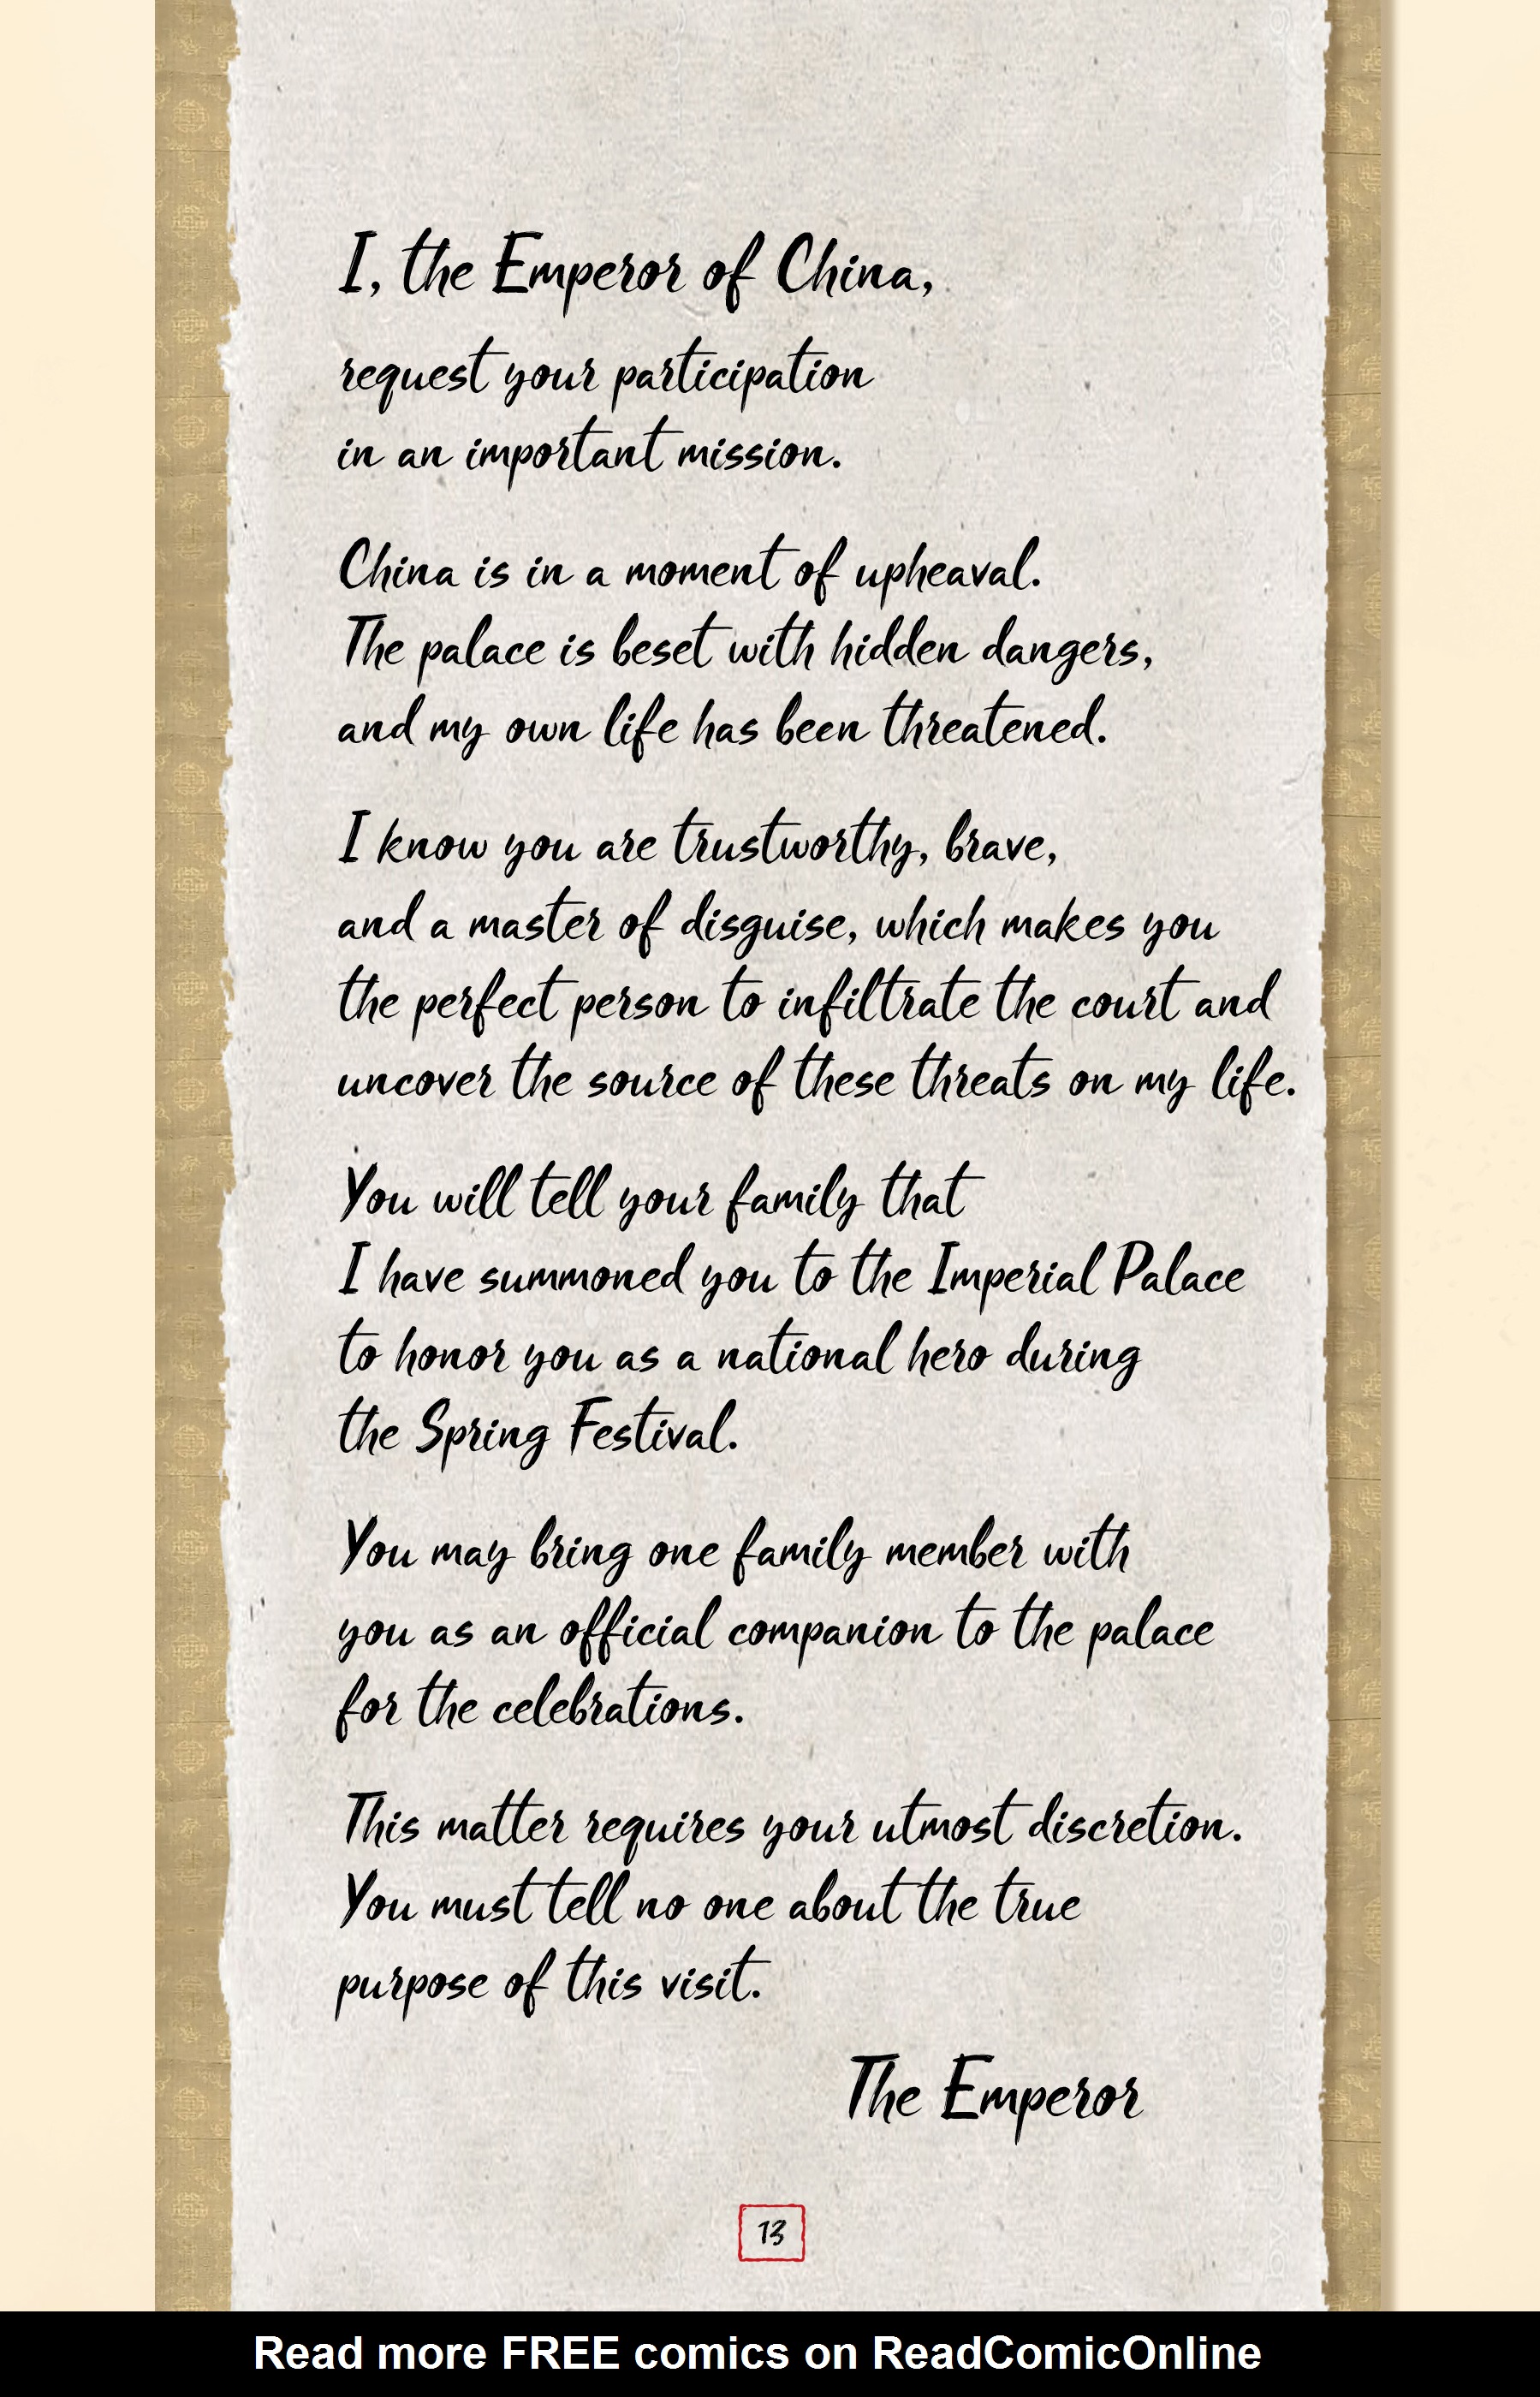 I, the Emperor of China,
request your participation
in an important mission.
China is in a moment of upheaval.
The palace is beset with hidden dangers,
and my own life has been threatened.
I know you are trustworthy, brave,
and a master of disguise, which makes you
the perfect person to infiltrate the court and
uncover the source of these threats on my life.
You will tell your family that
I have summoned you to the Imperial Palace
to honor you as a national hero during
the Spring Festival.
You may bring one family member with
you as an official companion to the palace
for the celebrations.
This matter requires your utmost discretion.
You must tell no one about the true
purpose of this visit.
The Emperor
13
Read more FREE comics on ReadComicOnline